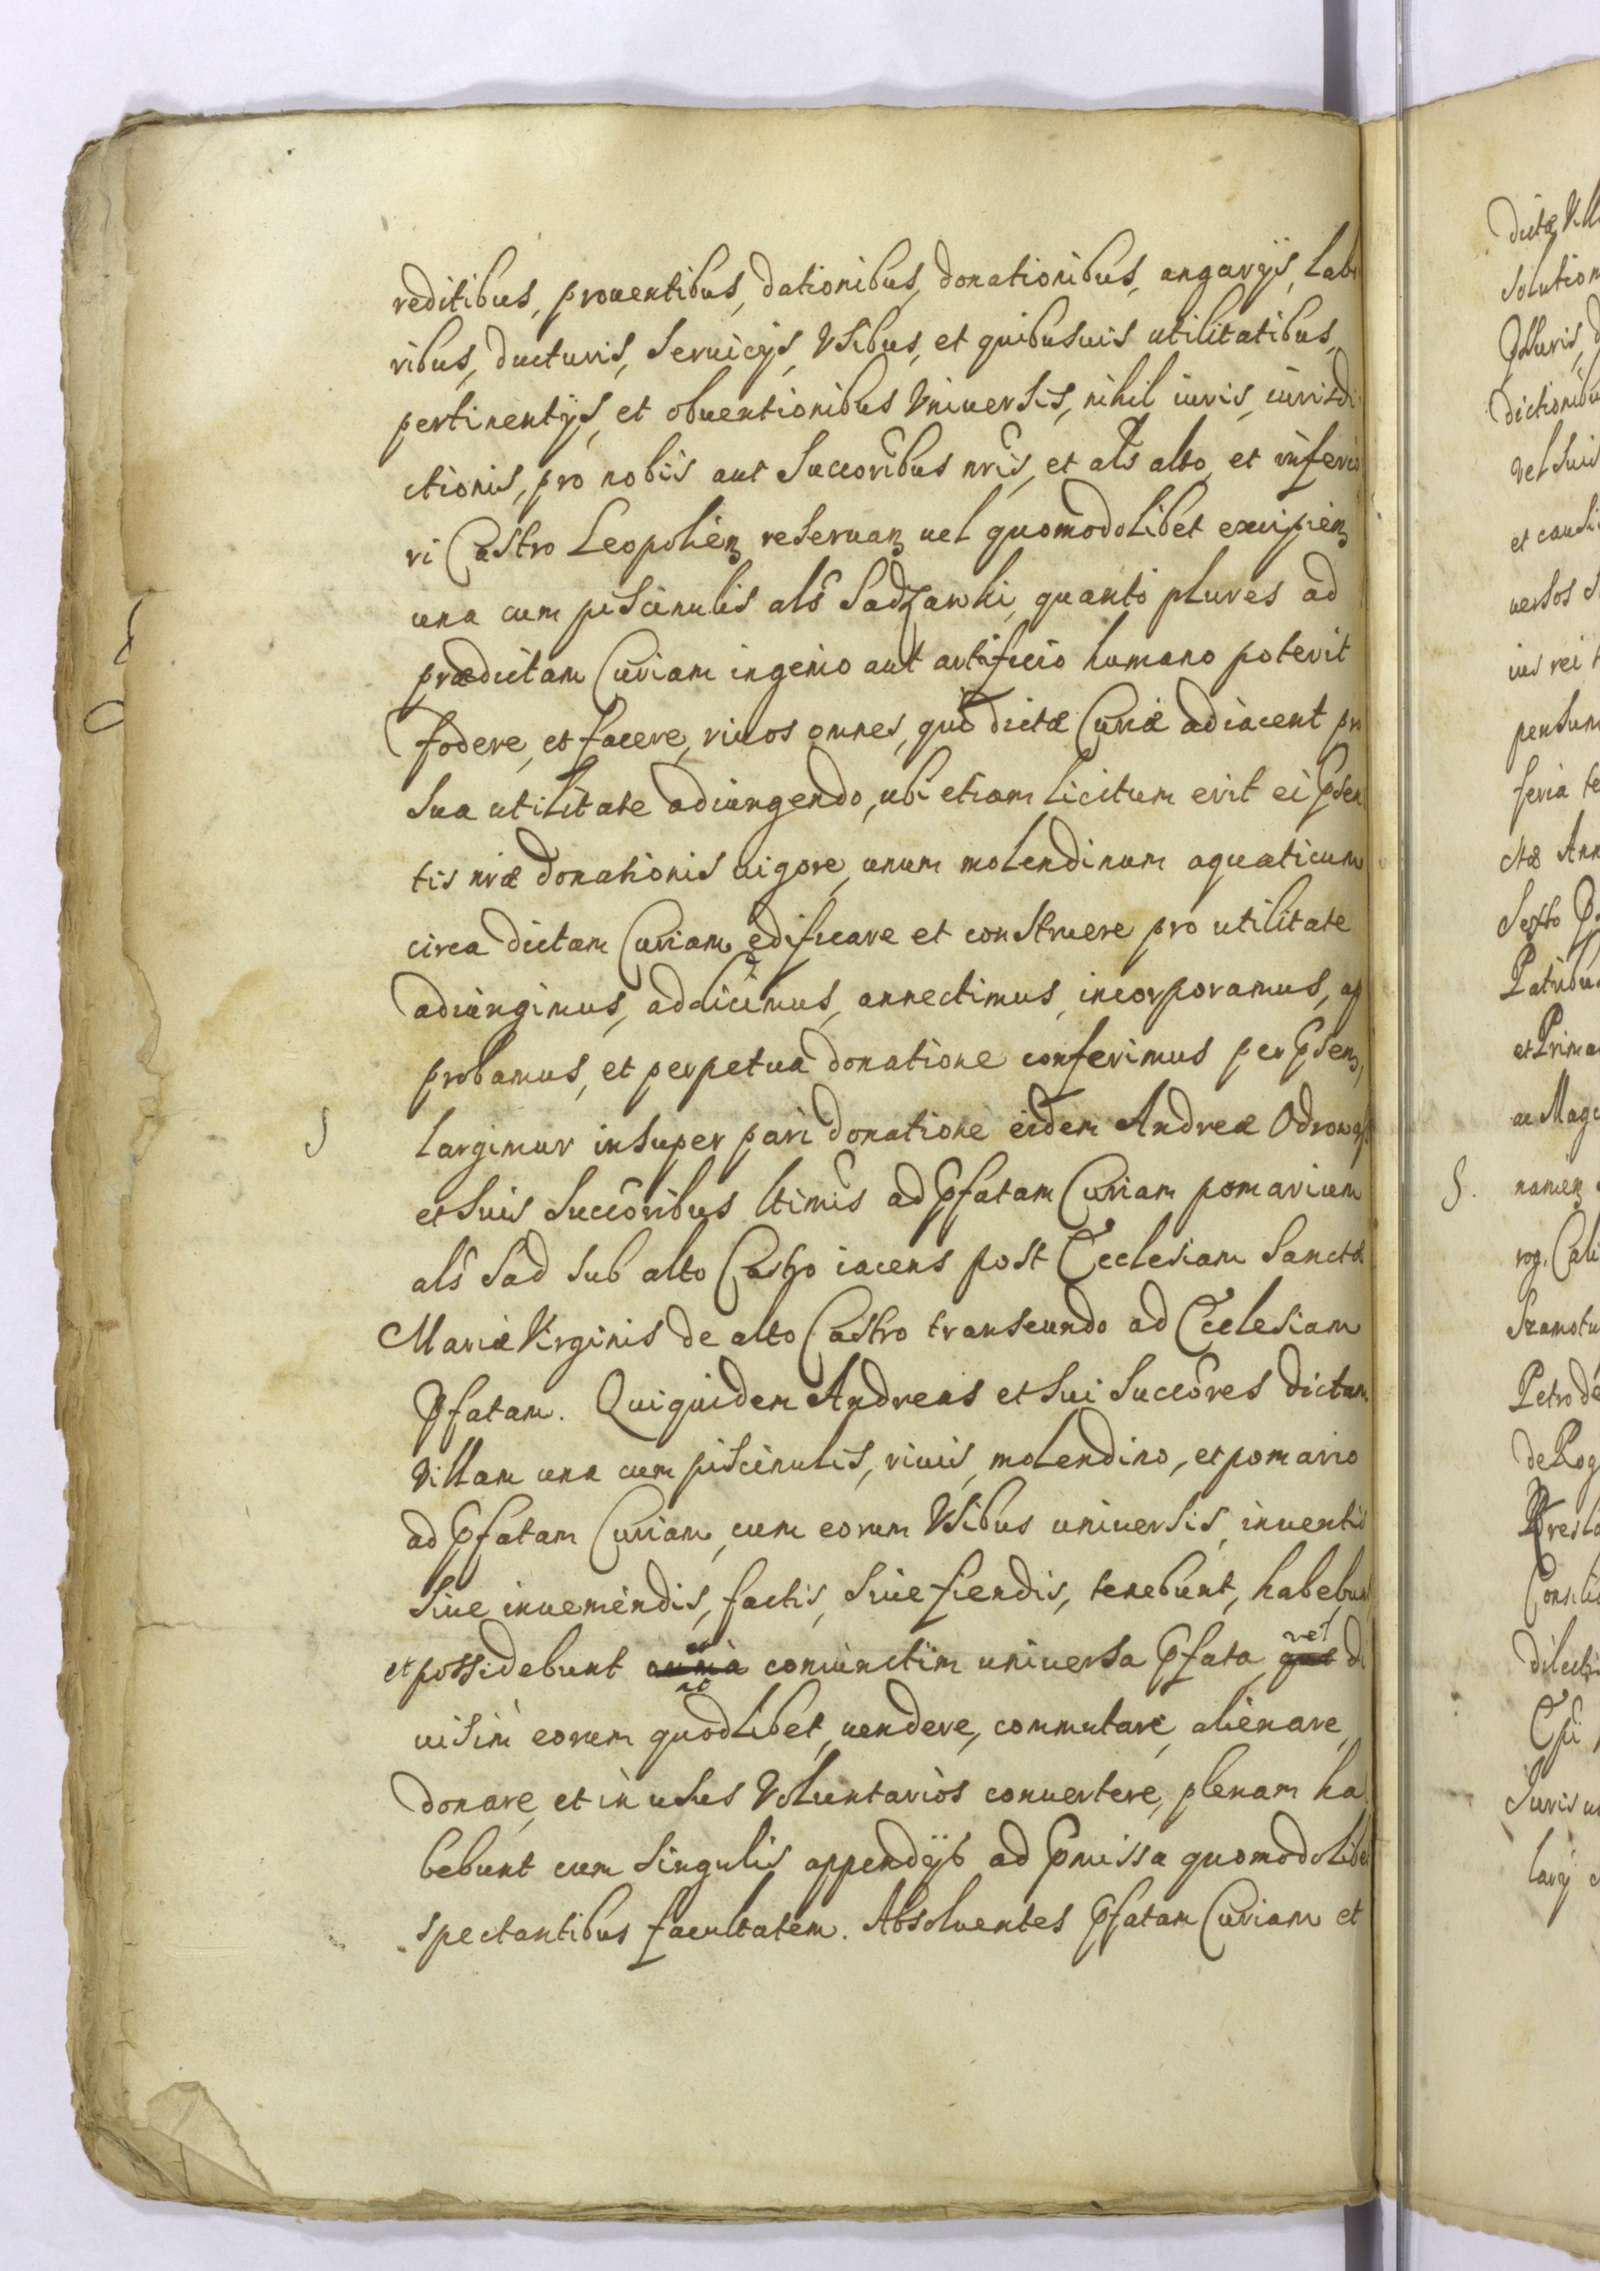 reditibus, prouentibus, dationibus, donationibus, angarijs, labo
ribus, ducturis, Seruicijs, Vsibus, et quibusuis utilitatibus,
pertinentijs, et obuentionibus Vniuersis, nihil iuris, iurisdi
ctionis, pro nobis aut Succoribus nris, et als alto, et inferio
ri Castro Leopolien reseruan uel quomodolibet excipien
una cum piscinulis als Sadzawki, quanto plures ad
prædictam Curiam ingenio aut artificio humano poterit
fodere, et facere, riuos omnes, qui dictæ Curiæ adiacent pro
Sua utilitate adiungendo, ubi etiam licitum erit ei Psen
tis nræ donationis uigore, unum molendinum aquaticum
circa dictam Curiam edificare et construere pro utilitate
adiungimus, addicimus, annectimus, incorporamus, ap
probamus, et perpetua donatione conferimus per Psen,
S largimur insuper pari donatione eidem Andreæ Odrowąs
et Suis Succoribus ltimis ad Pfatam Curiam pomarium
als Sad sub alto Castro iacens post Ecclesiam Sanctæ
Mariæ Virginis de alto Castro transeundo ad Ecclesiam
Pfatam. Qui quidem Andreas et Sui Succores dictam
Villam una cum piscinulis, riuis, molendino, et pomario
ad Pfatam Curiam, cum eorum Vsibus uniuersis, inuentis
Siue inueniendis, factis, Siue fiendis, tenebunt, habebunt
et possidebunt coniunctim uniuersa Pfata vel di
uisim eorum quodlibet, uendere, commutare, alienare,
donare, et in usus Voluntarios conuertere, plenam ha
bebunt cum Singulis appendijs ad Pmissa quomodolibet
spectantibus facultatem. Absoluentes Pfatam Curiam et
dictæ Vill
solution
dictionibu
vel suis
et causis
uersos
ius rei
pensum
feria
ctæ Ann
Sexto
Patribus
et Prima
ac Mag
S. namen
rog. Cali
Szamotu
Petro de
de Rog
Consili
dilecti
Iuris
larij